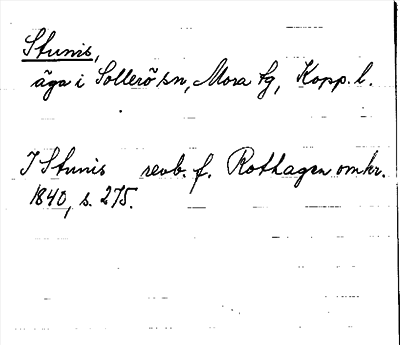 Stunis,
äga i Sollerö sn, Mora tg, Kopp. l.
I Stunis revb. f. Rothagen omkr.
1840, s. 275.